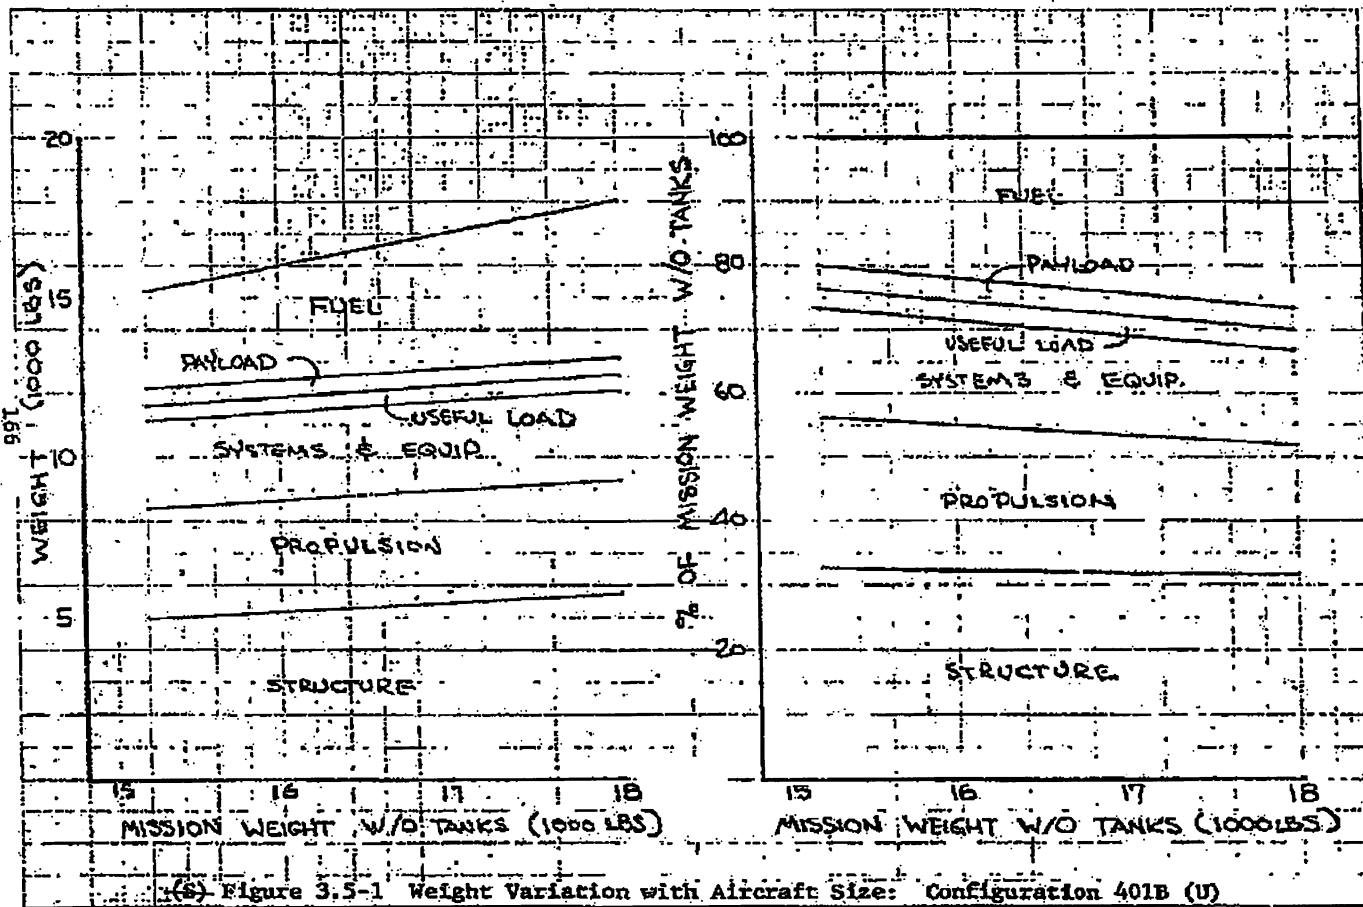 20
15
10
5
WEIGHT (1000 LBS)
166
FUEL
PAYLOAD
USEFUL LOAD
SYSTEMS & EQUIP.
PROPULSION
STRUCTURE
15 16 17 18
MISSION WEIGHT W/O TANKS (1000 LBS)
100
80
60
40
20
% OF MISSION WEIGHT W/O TANKS
FUEL
PAYLOAD
USEFUL LOAD
SYSTEMS & EQUIP.
PROPULSION
STRUCTURE
15 16 17 18
MISSION WEIGHT W/O TANKS (1000LBS)
(S) Figure 3.5-1 Weight Variation with Aircraft Size: Configuration 401B (U)